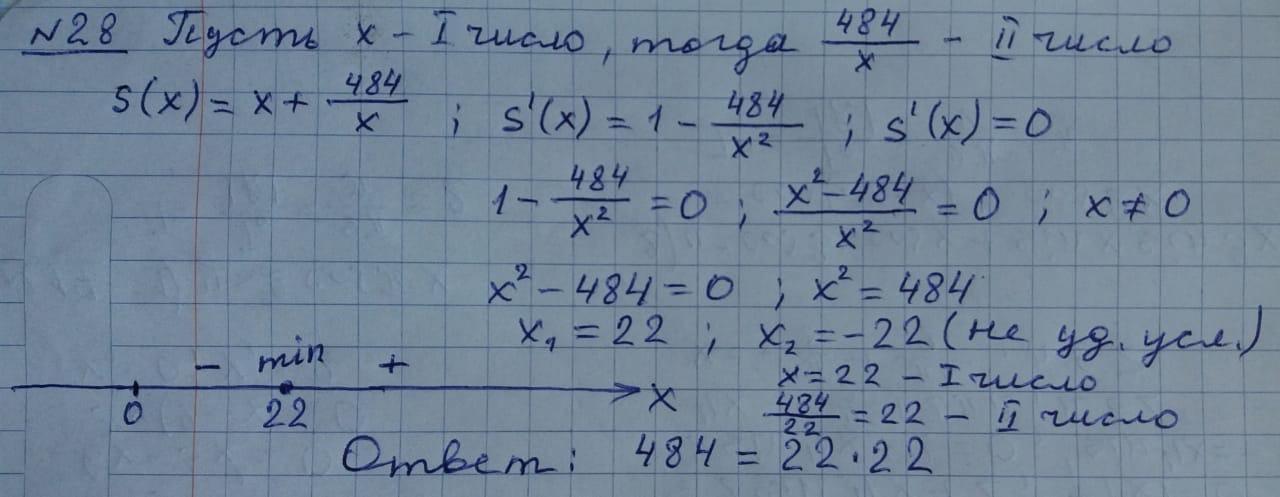 №28 Пусть x - I число, тогда 484/x - II число
S(x) = x + 484/x ; S'(x) = 1 - 484/x² ; S'(x) = 0
1 - 484/x² = 0 ; (x² - 484)/x² = 0 ; x ≠ 0
x² - 484 = 0 ; x² = 484
x₁ = 22 ; x₂ = -22 (не уд. усл.)
- min +
0 22 x
x = 22 - I число
484/22 = 22 - II число
Ответ: 484 = 22 · 22